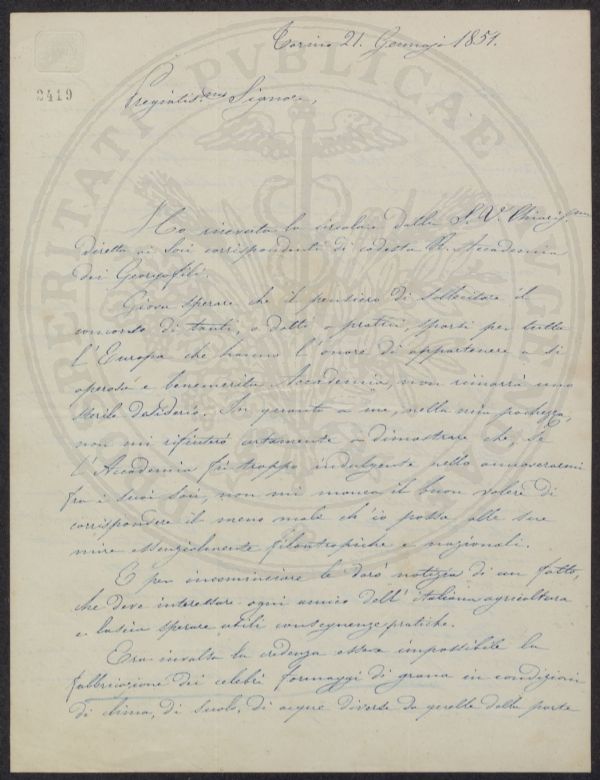 Torino 21. Gennajo 1851.
2419
Pregiatis.mo Signore,
Ho ricevuta la circolare dalla S. V. Chiaris.ma
diretta ai Soci corrispondenti di codesta R. Accademia
dei Georgofili.
Giova sperare che il pensiero di sollecitare il
concorso di tanti, o dotti o pratici, sparsi per tutta
l'Europa che hanno l'onore di appartenere a sì
operosa e benemerita Accademia, non rimarrà uno
sterile desiderio. In quanto a me, nella mia pochezza,
non mi rifiuterò certamente a dimostrare che, se
l'Accademia fu troppo indulgente nello annoverarmi
fra i suoi Soci, non mi manca il buon volere di
corrispondere il meno male ch'io possa alle sue
mire essenzialmente filantropiche e nazionali.
E per incominciare le darò notizia di un fatto,
che deve interessare ogni amico dell'italiana agricoltura
e lascia sperare utili conseguenze pratiche.
Era invalsa la credenza essere impossibile la
fabbricazione dei celebri formaggi di grana in condizioni
di clima, di suolo, di acque diverse da quelle della parte
PVBLICAE